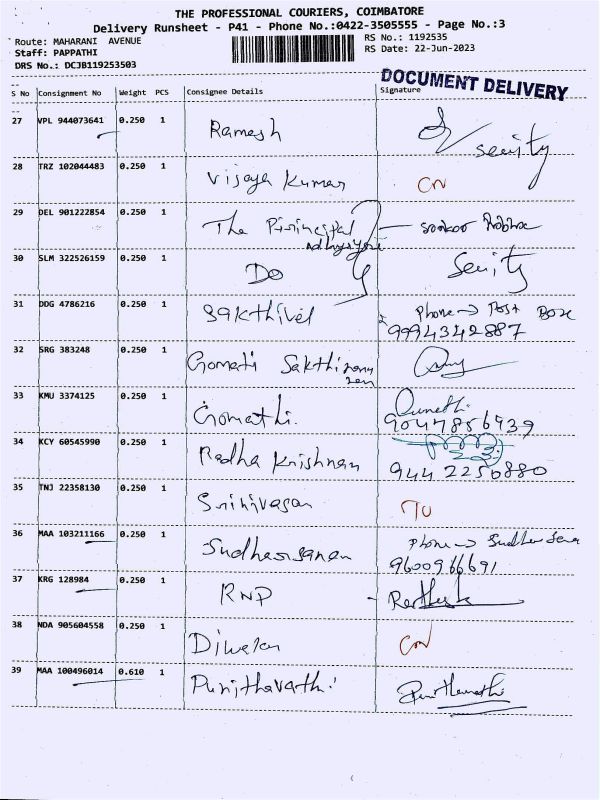 THE PROFESSIONAL COURIERS, COIMBATORE
Delivery Runsheet - P41 - Phone No.:0422-3505555 - Page No.:3
Route: MAHARANI AVENUE
RS No.: 1192535
Staff: PAPPATHI
RS Date: 22-Jun-2023
DRS No.: DCJB119253503
DOCUMENT DELIVERY
S No Consignment No Weight PCS Consignee Details Signature
27 VPL 944073641 0.250 1 Ramesh
28 TRZ 102044483 0.250 1 Vijaya Kumar CN
29 DEL 901222854 0.250 1 The Pirincipal
30 SLM 322526159 0.250 1 DO
31 DDG 4786216 0.250 1 Sakthivel Phone → Post Box
9994342887
32 SRG 383248 0.250 1 Gomati
33 KMU 3374125 0.250 1 Gomathi.
9047856939
34 KCY 60545990 0.250 1 Radha Krishnan
9442250880
35 TNJ 22358130 0.250 1 Srinivasan TU
36 MAA 103211166 0.250 1 Sudharsanan Phone →
9600966691
37 KRG 128984 0.250 1 RNP
38 NDA 905604558 0.250 1 Diwakar CN
39 MAA 100496014 0.610 1 Punithavathi